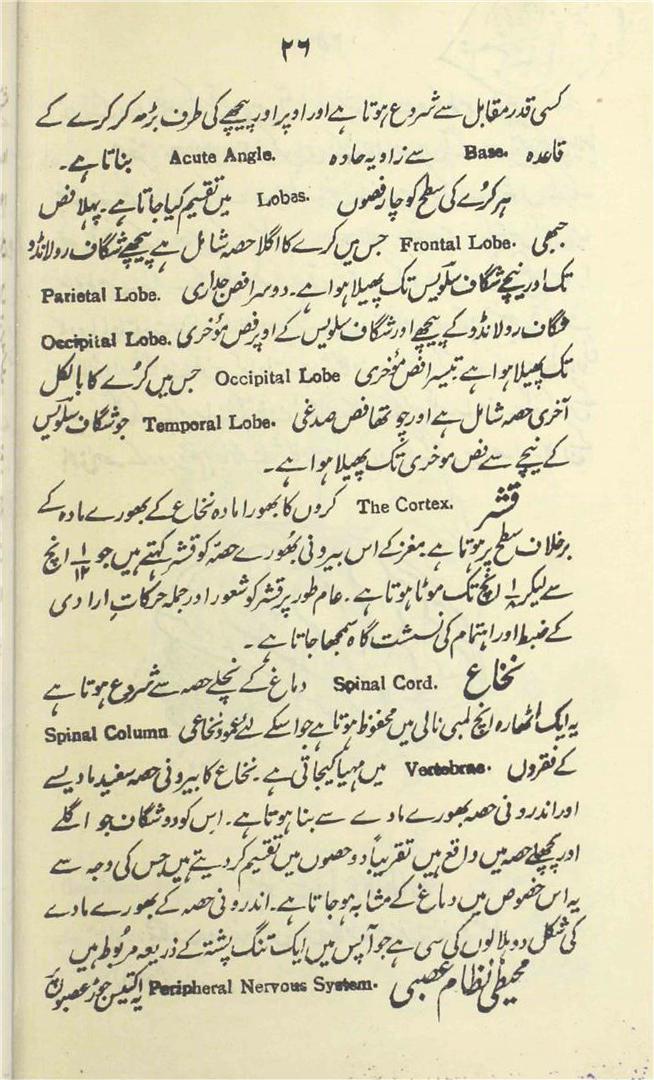 ۲۶
کسی قدر مقابل سے شروع ہوتا ہے اور اوپر اور پیچھے کی طرف بڑھ کر کرے کے
قاعدہ Base. سے زاویہ حادہ Acute Angle. بناتا ہے۔
ہر کرُے کی سطح کو چار فصوں Lobes. میں تقسیم کیا جاتا ہے۔ پہلا فص
جبھی Frontal Lobe. جس میں کرے کا اگلا حصہ شامل ہے پیچھے شگاف رولانڈو
تک اور نیچے شگاف سلویس تک پھیلا ہوا ہے۔ دوسرا فص جداری Parietal Lobe.
شگاف رولانڈو کے پیچھے اور شگاف سلویس کے اوپر فص مؤخری Occipital Lobe.
تک پھیلا ہوا ہے تیسرا فص مؤخری Occipital Lobe جس میں کرُے کا بالکل
آخری حصہ شامل ہے اور چوتھا فص صدغی Temporal Lobe. جو شگاف سلویس
کے نیچے سے فص موخری تک پھیلا ہوا ہے۔
قشر The Cortex. کروں کا بھورا مادہ نخاع کے بھورے مادہ کے
برخلاف سطح پر ہوتا ہے مغز کے اس بیرونی بھُورے حصّہ کو قشر کہتے ہیں جو ۱/۱۲ انچ
سے لیکر ۱/۸ انچ تک موٹا ہوتا ہے۔ عام طور پر قشر کو شعور اور جملہ حرکاتِ ارادی
کے ضبط اور اہتمام کی نشست گاہ سمجھا جاتا ہے۔
نخاع Spinal Cord. دماغ کے نچلے حصہ سے شروع ہوتا ہے
یہ ایک اٹھارہ انچ لمبی نالی میں محفوظ ہوتا ہے جو اسکے لئے عمود نخاعی Spinal Column
کے فقروں Vertebrae. میں مہیا کیجاتی ہے۔ نخاع کا بیرونی حصہ سفید مادیسے
اور اندرونی حصہ بھورے مادے سے بنا ہوتا ہے۔ اس کو دو شگاف جو اگلے
اور پچھلے حصہ میں واقع ہیں تقریباً دو حصوں میں تقسیم کر دیتے ہیں جس کی وجہ سے
یہ اس خصوص میں دماغ کے مشابہ ہو جاتا ہے۔ اندرونی حصہ کے بھورے مادے
کی شکل دو ہلالوں کی سی ہے جو آپس میں ایک تنگ پشتہ کے ذریعہ مربُوط ہیں
محیطی نظام عصبی Peripheral Nervous System. یہ اکتیس جوڑ عصبوں